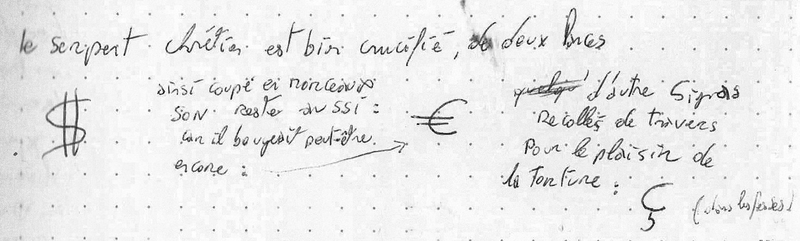 le serpent chrétien est bien crucifié, de deux bras
$
ainsi coupé en morceaux
son reste aussi :
car il bougerait peut-être
encore :
€
d'autre signes
recollés de travers
pour le plaisir de
la torture :
ç
(dans les fesses)